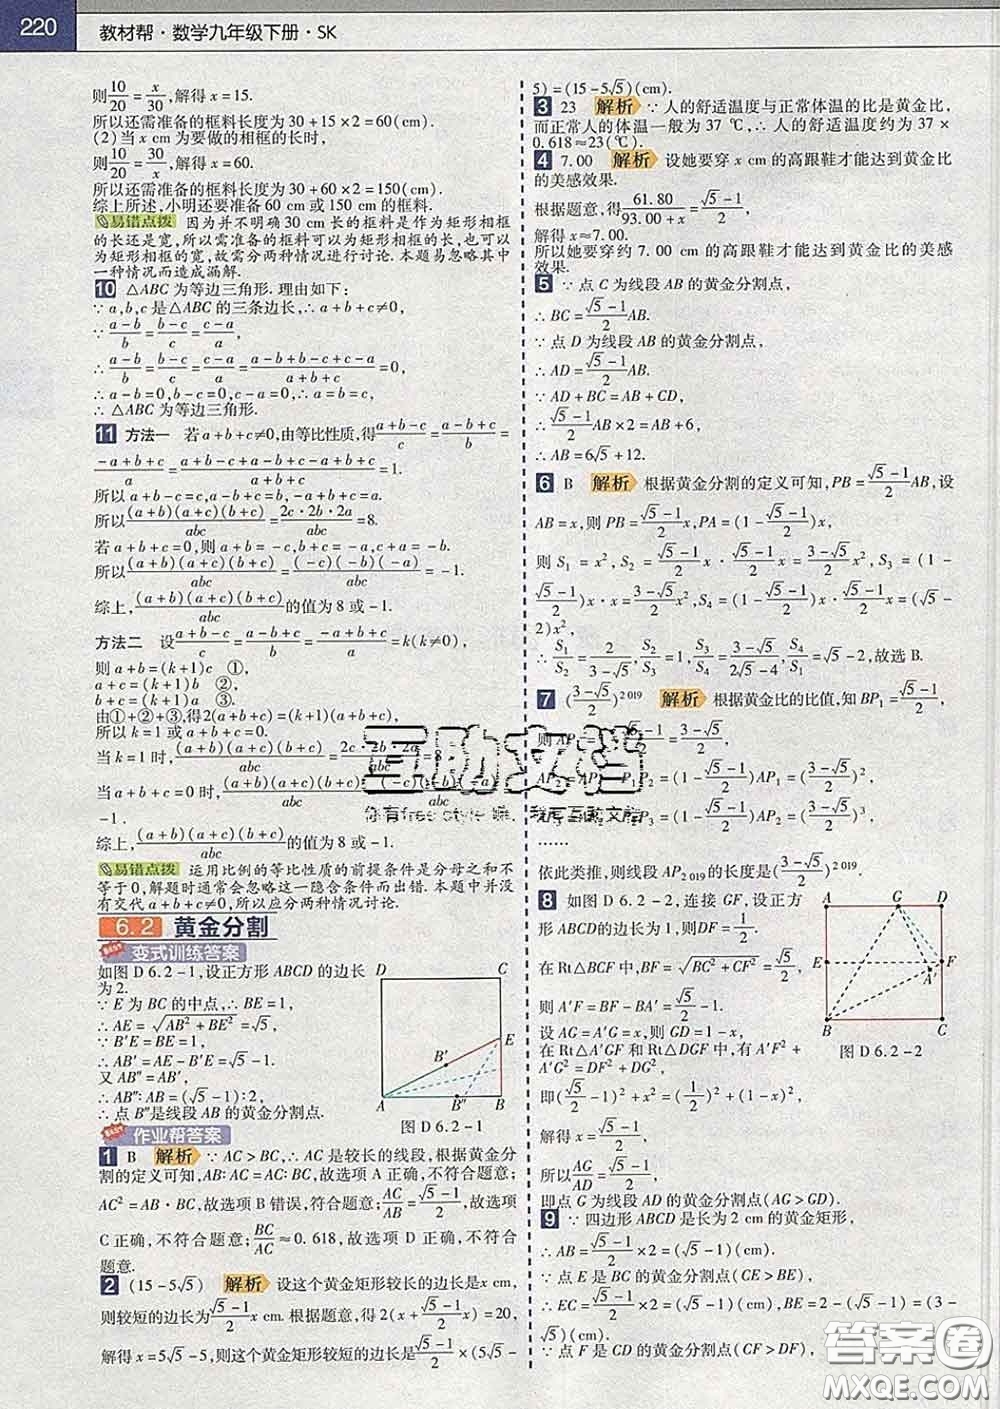 220 教材帮·数学九年级下册·SK
则10/20=x/30,解得 x=15.
所以还需准备的框料长度为 30+15×2=60(cm).
(2)当 x cm 为要做的相框的长时,
则10/20=30/x,解得 x=60.
所以还需准备的框料长度为 30+60×2=150(cm).
综上所述,小明还要准备 60 cm 或 150 cm 的框料.
易错点拨 因为并不明确 30 cm 长的框料是作为矩形相框
的长还是宽,所以需准备的框料可以为矩形相框的长,也可以
为矩形相框的宽,故需分两种情况进行讨论.本题易忽略其中
一种情况而造成漏解.
10 △ABC 为等边三角形.理由如下:
∵a,b,c 是△ABC 的三条边长,∴a+b+c≠0.
∵(a-b)/b=(b-c)/c=(c-a)/a,
∴(a-b)/b=(b-c)/c=(c-a)/a=(a-b+b-c+c-a)/(a+b+c)=0,
∴a-b=0,b-c=0,c-a=0,∴a=b=c,
∴△ABC 为等边三角形.
11 方法一 若 a+b+c≠0,由等比性质,得(a+b-c)/c=(a-b+c)/b=
(-a+b+c)/a=(a+b-c+a-b+c-a+b+c)/(a+b+c)=1.
所以 a+b-c=c,a-b+c=b,-a+b+c=a.
所以(a+b)(a+c)(b+c)/abc=2c·2b·2a/abc=8.
若 a+b+c=0,则 a+b=-c,b+c=-a,a+c=-b.
所以(a+b)(a+c)(b+c)/abc=(-c)(-b)(-a)/abc=-1.
综上,(a+b)(a+c)(b+c)/abc的值为 8 或-1.
方法二 设(a+b-c)/c=(a-b+c)/b=(-a+b+c)/a=k(k≠0),
则 a+b=(k+1)c ①,
a+c=(k+1)b ②,
b+c=(k+1)a ③.
由①+②+③,得2(a+b+c)=(k+1)(a+b+c),
所以 k=1 或 a+b+c=0.
当 k=1 时,(a+b)(a+c)(b+c)/abc=2c·2b·2a/abc=8
当 a+b+c=0 时,(a+b)(a+c)(b+c)/abc
-1.
综上,(a+b)(a+c)(b+c)/abc的值为 8 或-1.
易错点拨 运用比例的等比性质的前提条件是分母之和不
等于 0,解题时通常会忽略这一隐含条件而出错.本题中并没
有交代 a+b+c≠0,所以应分两种情况讨论.
6.2 黄金分割
变式训练答案
如图 D 6.2-1,设正方形 ABCD 的边长
为 2.
∵E 为 BC 的中点,∴BE=1,
∴AE=√(AB²+BE²)=√5,
∵B′E=BE=1,
∴AB′=AE-B′E=√5-1.
又 AB″=AB′,
∴AB″:AB=(√5-1):2,
∴点 B″是线段 AB 的黄金分割点.
D C B′ E A B″ B
图 D 6.2-1
作业帮答案
1 B 解析 ∵AC>BC,∴AC 是较长的线段,根据黄金分
割的定义可知,AB:AC=AC:BC,故选项 A 正确,不符合题意;
AC²=AB·BC,故选项 B 错误,符合题意;AC/AB=(√5-1)/2,故选项
C 正确,不符合题意;BC/AC≈0.618,故选项 D 正确,不符合
题意.
2 (15-5√5) 解析 设这个黄金矩形较长的边长是x cm,
则较短的边长为(√5-1)/2 x cm.根据题意,得 2(x+(√5-1)/2 x)=20,
解得 x=5√5-5,则这个黄金矩形较短的边长是(√5-1)/2×(5√5-
5)=(15-5√5)(cm).
3 23 解析 ∵人的舒适温度与正常体温的比是黄金比,
而正常人的体温一般为 37 ℃,∴人的舒适温度约为 37×
0.618≈23(℃).
4 7.00 解析 设她要穿 x cm 的高跟鞋才能达到黄金比
的美感效果.
根据题意,得61.80/(93.00+x)=(√5-1)/2,
解得 x≈7.00.
所以她要穿约 7.00 cm 的高跟鞋才能达到黄金比的美感
效果.
5 ∵点 C 为线段 AB 的黄金分割点,
∴BC=(√5-1)/2 AB.
∵点 D 为线段 AB 的黄金分割点,
∴AD=(√5-1)/2 AB.
∵AD+BC=AB+CD,
∴(√5-1)/2 AB×2=AB+6,
∴AB=6√5+12.
6 B 解析 根据黄金分割的定义可知,PB=(√5-1)/2 AB,设
AB=x,则 PB=(√5-1)/2 x,PA=(1-(√5-1)/2)x,
则 S₁=x²,S₂=(√5-1)/2 x·(√5-1)/2 x=(3-√5)/2 x²,S₃=(1-
(√5-1)/2)x·x=(3-√5)/2 x²,S₄=(1-(√5-1)/2)x·(√5-1)/2 x=(√5-
2)x²,
∴S₁/S₂=2/(3-√5),S₂/S₃=1,S₃/S₄=(3-√5)/(2√5-4),S₄/S₁=√5-2,故选 B.
7 ((3-√5)/2)²⁰¹⁹ 解析 根据黄金比的比值,知 BP₁=(√5-1)/2,
则 AP₁=1-(√5-1)/2=(3-√5)/2,
AP₂ P₁P₂=(1-(√5-1)/2)AP₁=((3-√5)/2)²,
P₂P₃=(1-(√5-1)/2)AP₂=((3-√5)/2)³,
……
依此类推,则线段 AP₂₀₁₉的长度是((3-√5)/2)²⁰¹⁹.
8 如图 D 6.2-2,连接 GF,设正方
形 ABCD的边长为 1,则DF=1/2.
在 Rt△BCF 中,BF=√(BC²+CF²)=√5/2,
则 A′F=BF-BA′=√5/2-1.
设 AG=A′G=x,则 GD=1-x,
在 Rt△A′GF 和 Rt△DGF 中,有 A′F²+
A′G²=DF²+DG²,
即(√5/2-1)²+x²=(1/2)²+(1-x)²,
解得 x=(√5-1)/2,
所以AG/AD=(√5-1)/2,
即点 G 为线段 AD 的黄金分割点(AG>GD).
A G D E F A′ B C
图 D 6.2-2
9 ∵四边形 ABCD 是长为 2 cm 的黄金矩形,
∴AB=(√5-1)/2×2=(√5-1)(cm).
∵点 E 是 BC 的黄金分割点(CE>BE),
∴EC=(√5-1)/2×2=(√5-1)(cm),BE=2-(√5-1)=(3-
√5)(cm).
∵点 F 是 CD 的黄金分割点(CF>DF),
互助文档
你有free style 嘛,我有互助文档
答案圈
MXQE.COM